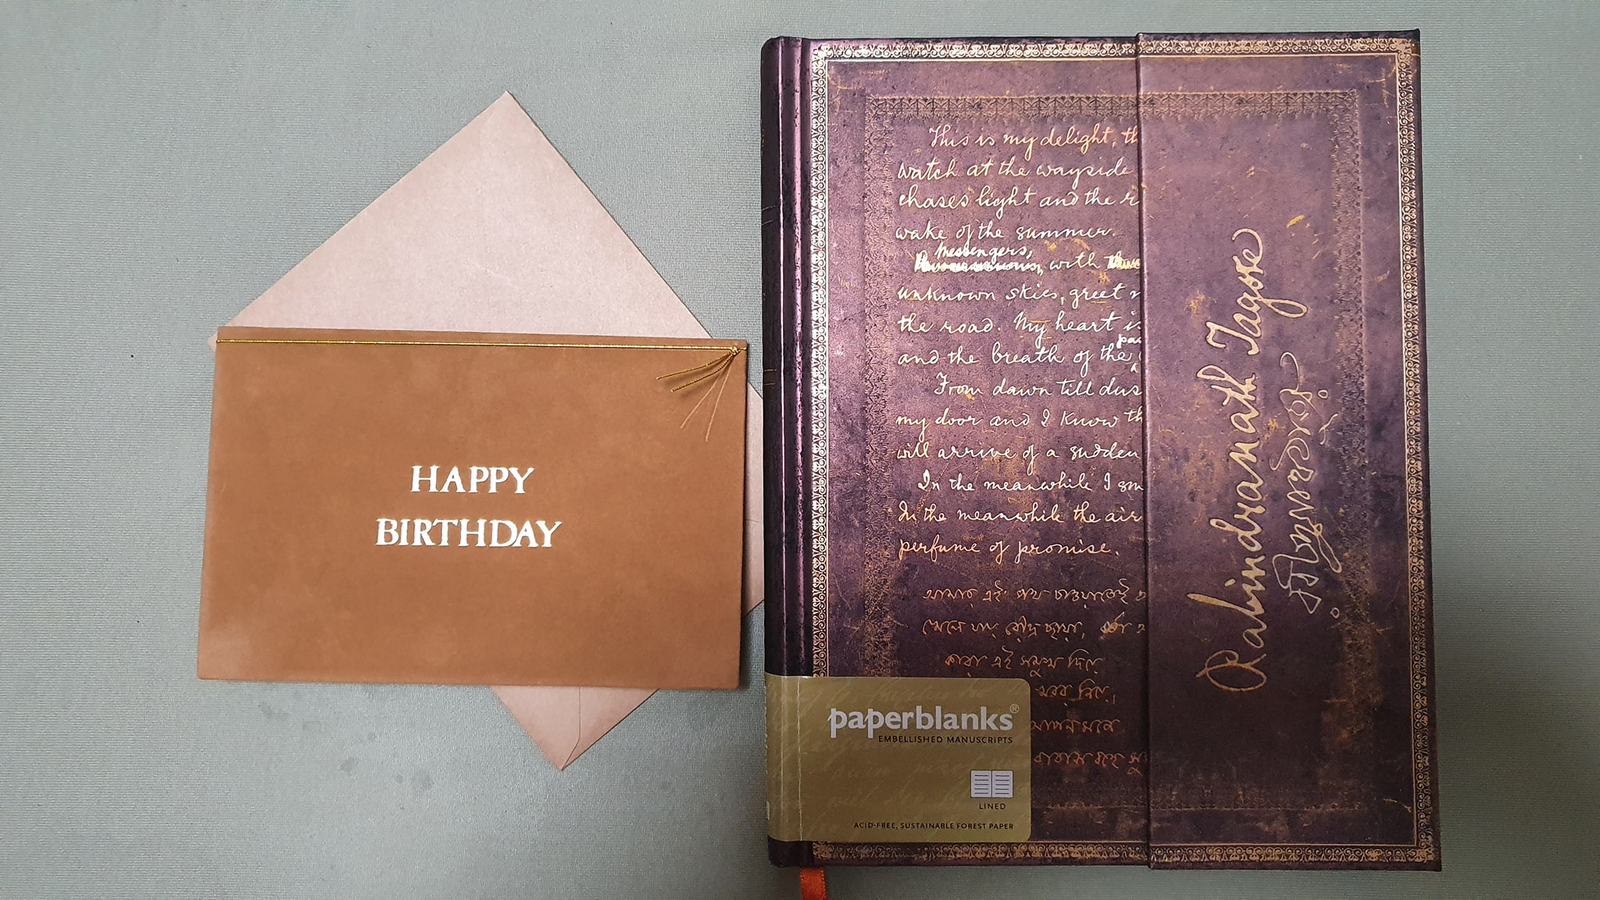 HAPPY
BIRTHDAY
This is my delight, th
watch at the wayside
chases light and the r
wake of the summer.
messengers,
with
unknown skies, greet
the road. My heart is
pa
and the breath of the
From dawn till dus
my door and I know th
will arrive of a sudden
In the meanwhile I sm
In the meanwhile the air
perfume of promise.
আমার এই পথ চাওয়াতেই
খেলে যায় রৌদ্র ছায়া,
কারা এই সমুখ দিয়ে
খবর নিয়ে,
আপন মনে
বাতাস বহে সু
Rabindranath Tagore
শ্রীরবীন্দ্রনাথ ঠাকুর
paperblanks®
EMBELLISHED MANUSCRIPTS
LINED
ACID-FREE, SUSTAINABLE FOREST PAPER